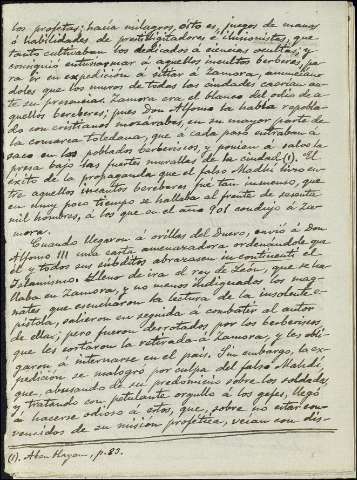 los profetas; hacía milagros, esto es, juegos de manos
ó habilidades de prestidigitadores é ilusionistas, que
tanto cultivaban los dedicados á ciencias ocultas, y
consiguió entusiasmar á aquellos incultos berberes, pa
ra ir en expedición á sitiar á Zamora, anuncian
doles que los muros de todas las ciudades caerían an
te su presencia. Zamora era el blanco del odio de a
quellos bereberes; pues Don Alfonso la había repobla-
do con cristianos mozárabes, en su mayor parte de
la comarca Toledana, que á cada paso entraban á
saco en los poblados berberiscos, y ponían á salvo la
presa bajo las fuertes murallas de la ciudad (1). El
éxito de la propaganda que el falso Madhi hizo en-
tre aquellos incautos bereberes fué tan inmenso, que
en muy poco tiempo se hallaba al frente de sesenta
mil hombres, á los que en el año 901 condujo á Za-
mora.
Cuando llegaron á orillas del Duero, envió á Don
Alfonso III una carta amenazadora ordenándole que
él y todos sus súbditos abrazasen in continenti el
Islamismo. Lleno de ira el rey de León, que se ha-
llaba en Zamora, y no menos indignados los mag-
nates que escucharon la lectura de la insolente e-
pístola, salieron en seguida á combatir al autor
de ella; pero fueron derrotados por los berberiscos
que les cortaron la retirada á Zamora, y les obli-
garon á internarse en el país. Sin embargo, la ex-
pedición se malogró por culpa del falso Mahdi,
que, abusando de su predominio sobre los soldados,
y tratando con petulante orgullo á los gefes, llegó
á hacerse odioso á estos, que, sobre no estar con-
vencidos de su misión profética, veían con dis-
(1). Aben Hayan, p. 83.